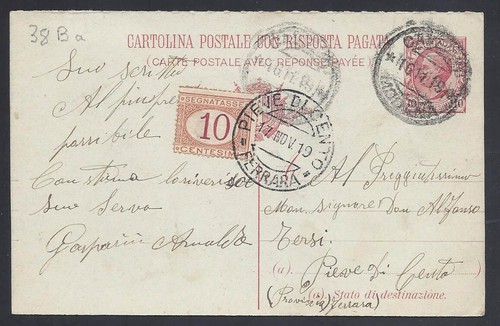 38 B a
CARTOLINA POSTALE CON RISPOSTA PAGATA
(CARTE POSTALE AVEC RÉPONSE PAYÉE
SEGNATASSE
10
CENTESIMI
PIEVE DI CENTO
17 NOV. 19
FERRARA
Suo
Al più
possibile
Con stima la riverisco
Suo Servo
Gasparini Arnaldo
Al Preggiatissimo
Monsignore Don Alfonso
Tersi.
(a). Pieve Di Cento
(Provincia Ferrara)
(a). Stato di destinazione.